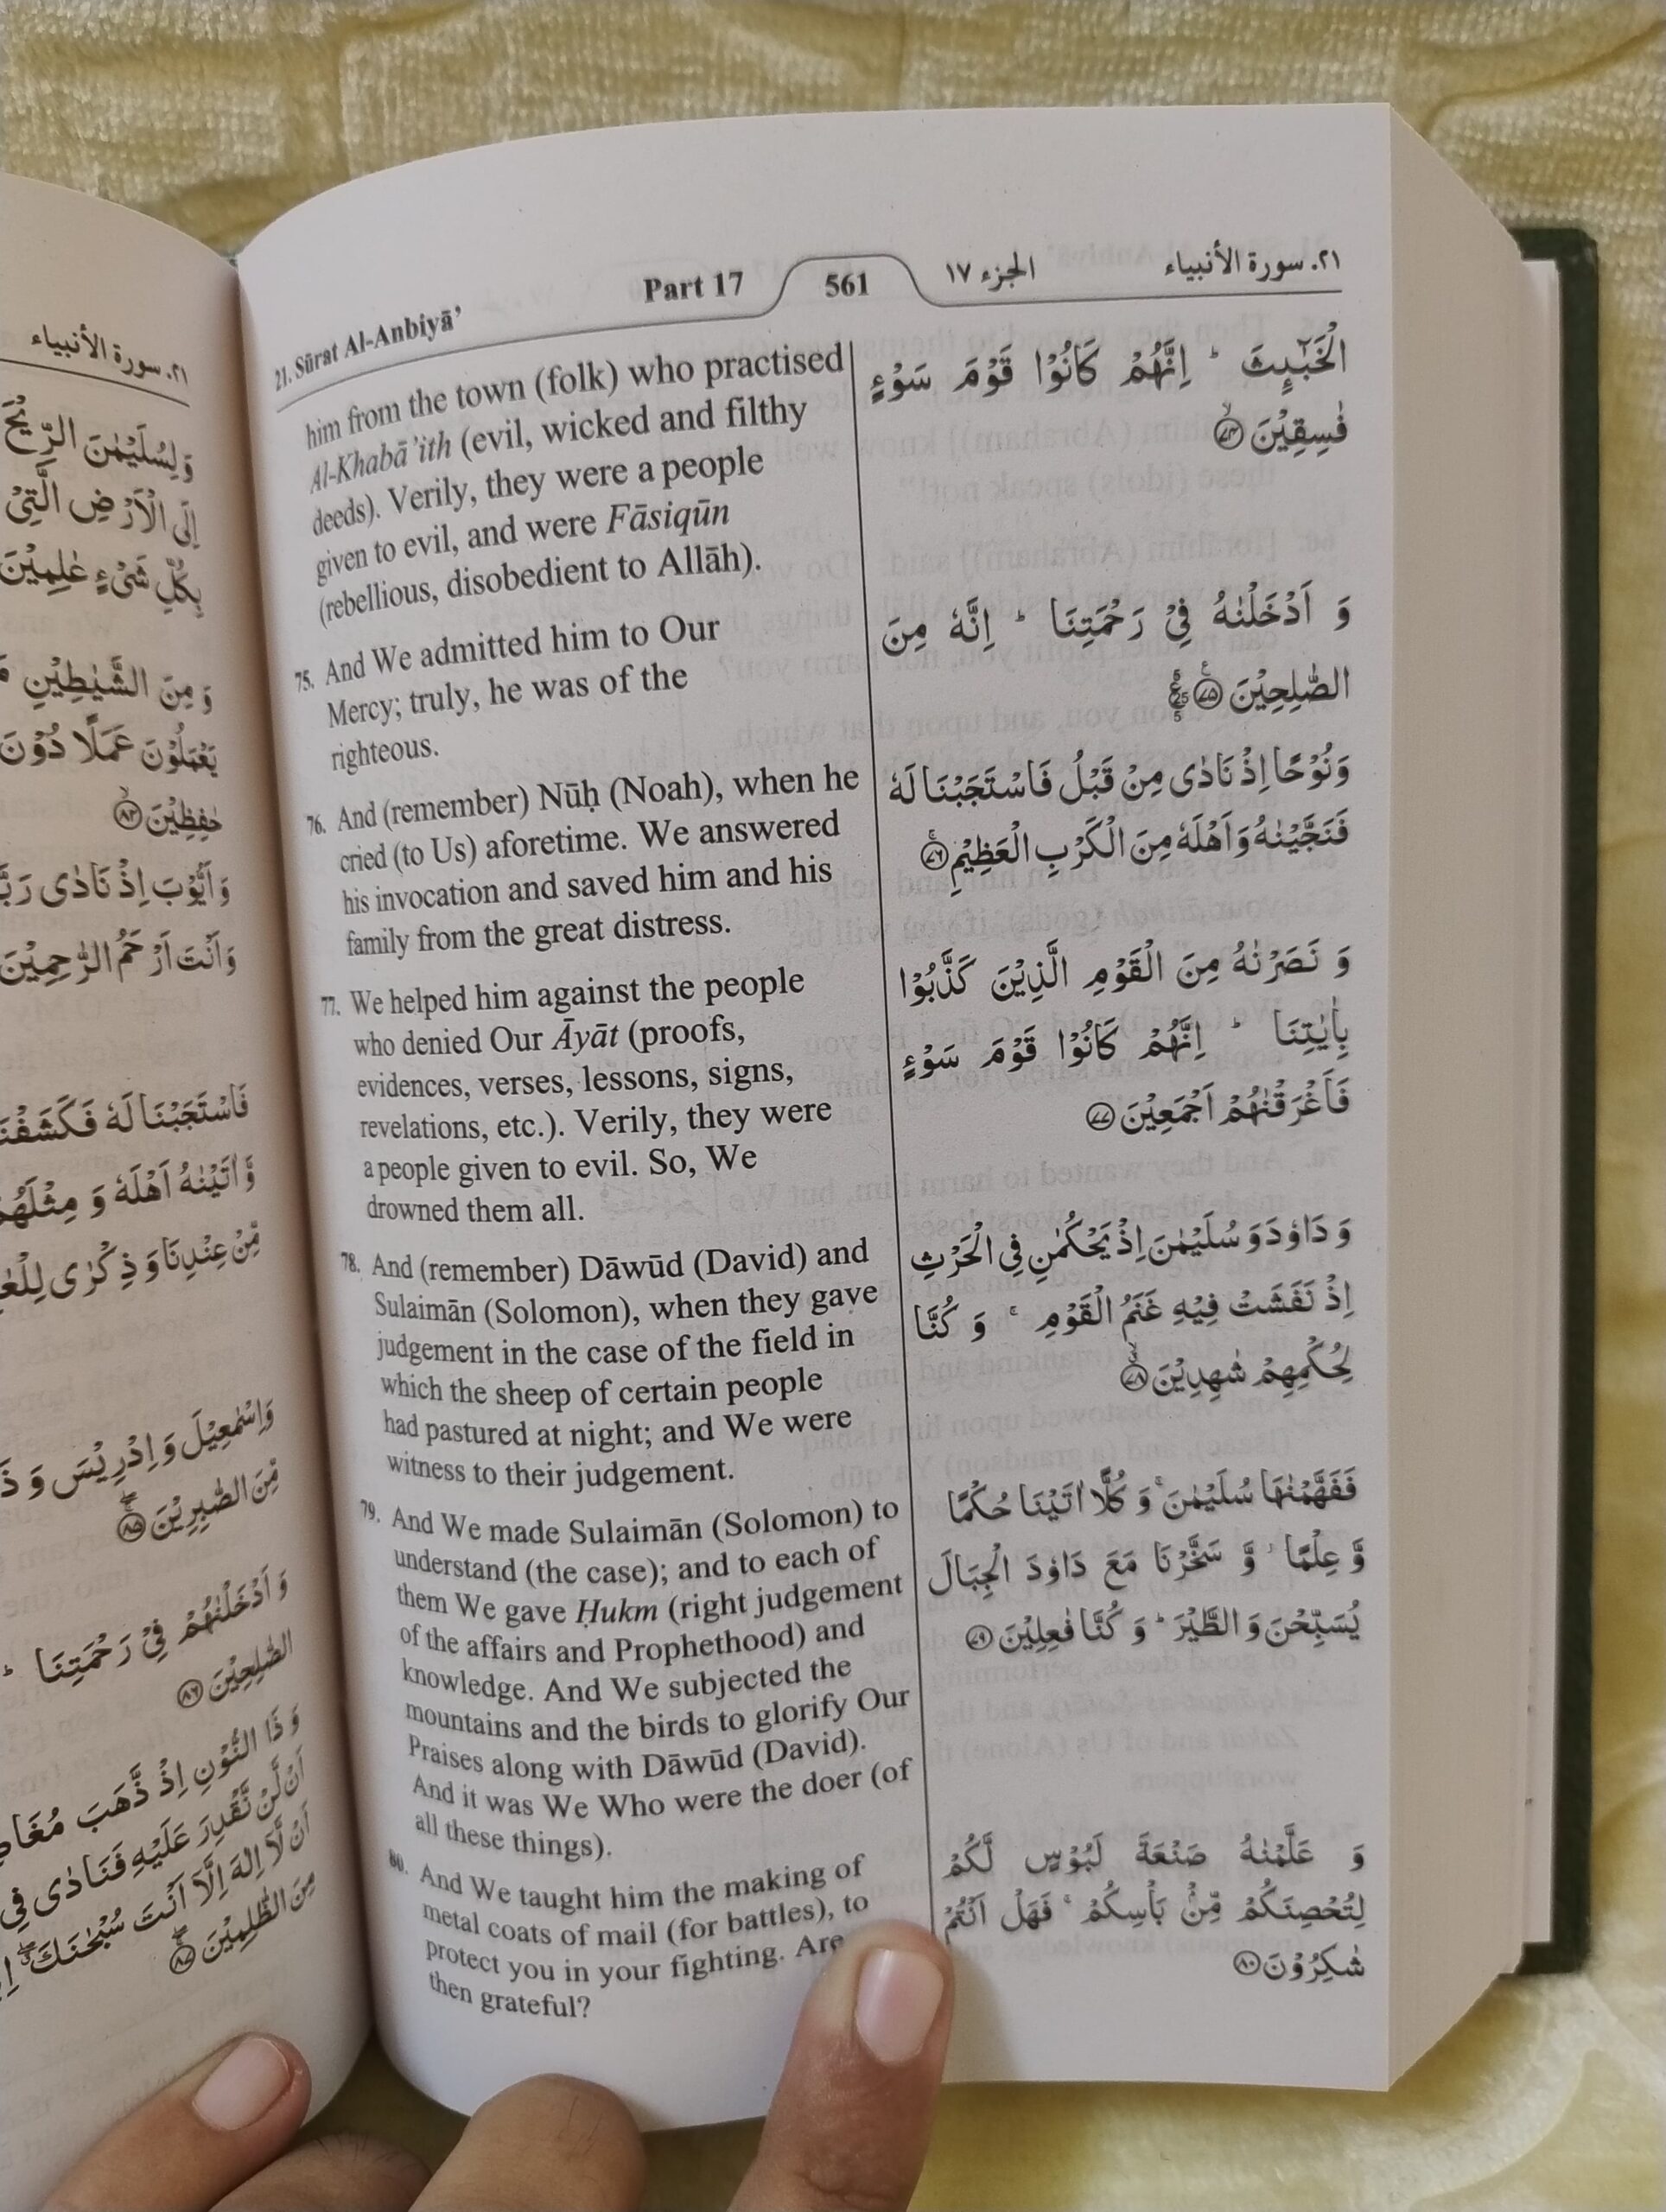 ٢١. سورة الأنبياء
وَلِسُلَيْمٰنَ الرِّيْحَ
اِلَى الْاَرْضِ الَّتِيْ
بِكُلِّ شَيْءٍ عٰلِمِيْنَ
وَ مِنَ الشَّيٰطِيْنِ
يَعْمَلُوْنَ عَمَلًا دُوْنَ
حٰفِظِيْنَ ﴿٨٢﴾
وَ اَيُّوْبَ اِذْ نَادٰى
وَ اَنْتَ اَرْحَمُ الرّٰحِمِيْنَ
فَاسْتَجَبْنَا لَهٗ فَكَشَفْنَا
وَّ اٰتَيْنٰهُ اَهْلَهٗ وَ مِثْلَهُمْ
مِّنْ عِنْدِنَا وَ ذِكْرٰى
وَ اِسْمٰعِيْلَ وَ اِدْرِيْسَ وَ
مِّنَ الصّٰبِرِيْنَ ﴿٨٥﴾
وَ اَدْخَلْنٰهُمْ فِيْ رَحْمَتِنَا
الصّٰلِحِيْنَ ﴿٨٦﴾
وَ ذَا النُّوْنِ اِذْ ذَّهَبَ
اَنْ لَّنْ نَّقْدِرَ عَلَيْهِ فَنَادٰى فِي
اَنْ لَّاۤ اِلٰهَ اِلَّاۤ اَنْتَ سُبْحٰنَكَ
مِنَ الظّٰلِمِيْنَ ﴿٨٧﴾
21. Sūrat Al-Anbiyā’ Part 17 561 الجزء ١٧ ٢١. سورة الأنبياء
him from the town (folk) who practised
Al-Khabā’ith (evil, wicked and filthy
deeds). Verily, they were a people
given to evil, and were Fāsiqūn
(rebellious, disobedient to Allāh).
75. And We admitted him to Our
Mercy; truly, he was of the
righteous.
76. And (remember) Nūḥ (Noah), when he
cried (to Us) aforetime. We answered
his invocation and saved him and his
family from the great distress.
77. We helped him against the people
who denied Our Āyāt (proofs,
evidences, verses, lessons, signs,
revelations, etc.). Verily, they were
a people given to evil. So, We
drowned them all.
78. And (remember) Dāwūd (David) and
Sulaimān (Solomon), when they gave
judgement in the case of the field in
which the sheep of certain people
had pastured at night; and We were
witness to their judgement.
79. And We made Sulaimān (Solomon) to
understand (the case); and to each of
them We gave Ḥukm (right judgement
of the affairs and Prophethood) and
knowledge. And We subjected the
mountains and the birds to glorify Our
Praises along with Dāwūd (David).
And it was We Who were the doer (of
all these things).
80. And We taught him the making of
metal coats of mail (for battles), to
protect you in your fighting. Are
then grateful?
الْخَبٰٓىِٕثَ ؕ اِنَّهُمْ كَانُوْا قَوْمَ سَوْءٍ
فٰسِقِيْنَ ﴿٧٤﴾
وَ اَدْخَلْنٰهُ فِيْ رَحْمَتِنَا ؕ اِنَّهٗ مِنَ
الصّٰلِحِيْنَ ﴿٧٥﴾
وَ نُوْحًا اِذْ نَادٰى مِنْ قَبْلُ فَاسْتَجَبْنَا لَهٗ
فَنَجَّيْنٰهُ وَ اَهْلَهٗ مِنَ الْكَرْبِ الْعَظِيْمِ ﴿٧٦﴾
وَ نَصَرْنٰهُ مِنَ الْقَوْمِ الَّذِيْنَ كَذَّبُوْا
بِاٰيٰتِنَا ؕ اِنَّهُمْ كَانُوْا قَوْمَ سَوْءٍ
فَاَغْرَقْنٰهُمْ اَجْمَعِيْنَ ﴿٧٧﴾
وَ دَاوٗدَ وَ سُلَيْمٰنَ اِذْ يَحْكُمٰنِ فِي الْحَرْثِ
اِذْ نَفَشَتْ فِيْهِ غَنَمُ الْقَوْمِ ۚ وَ كُنَّا
لِحُكْمِهِمْ شٰهِدِيْنَ ﴿٧٨﴾
فَفَهَّمْنٰهَا سُلَيْمٰنَ ۚ وَ كُلًّا اٰتَيْنَا حُكْمًا
وَّ عِلْمًا ؗ وَّ سَخَّرْنَا مَعَ دَاوٗدَ الْجِبَالَ
يُسَبِّحْنَ وَ الطَّيْرَ ؕ وَ كُنَّا فٰعِلِيْنَ ﴿٧٩﴾
وَ عَلَّمْنٰهُ صَنْعَةَ لَبُوْسٍ لَّكُمْ
لِتُحْصِنَكُمْ مِّنْۢ بَاْسِكُمْ ۚ فَهَلْ اَنْتُمْ
شٰكِرُوْنَ ﴿٨٠﴾